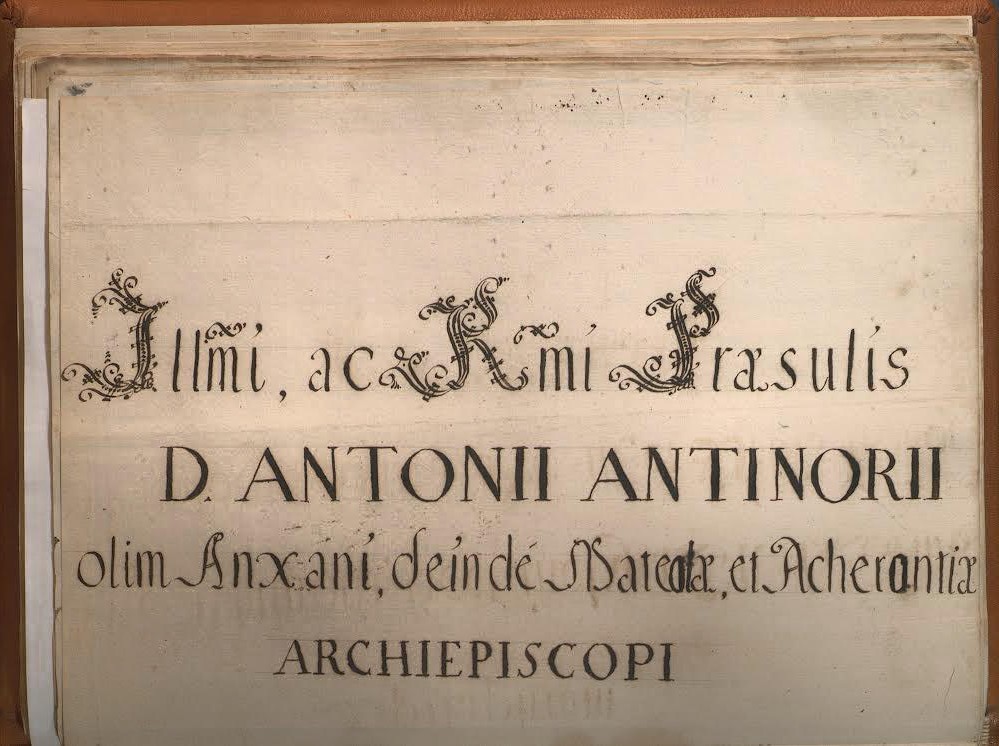 Illm̃i, ac Rm̃i Præsulis
D. ANTONII ANTINORII
olim Anxani, deindé Mateolæ, et Acherontiæ
ARCHIEPISCOPI